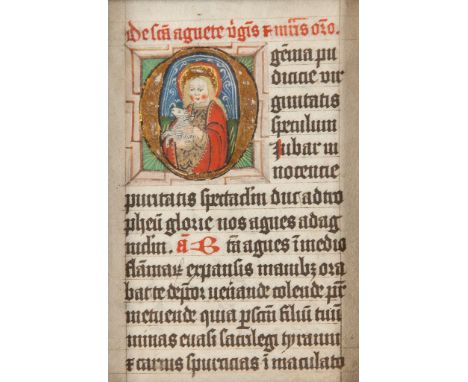 De scā agnete v̄gīs ⁊ mr̄is or̄o.
O gēma pu
dicicie vir
ginitatis
speculum
Jubar in
nocencie
puritatis spectaclm̄ duc ad tro
pheū glorie nos agnes ad ag
nicl̄m. ā B tā agnes ī medio
flāmaꝝ expansis manibꝫ ora
bat te dep̄cor uenande colende pr̄
metuende quia ꝑ scm̄ filiū tuū
minas euasi sacrilegi tyranni
⁊ carnis spurcicias ī maculato